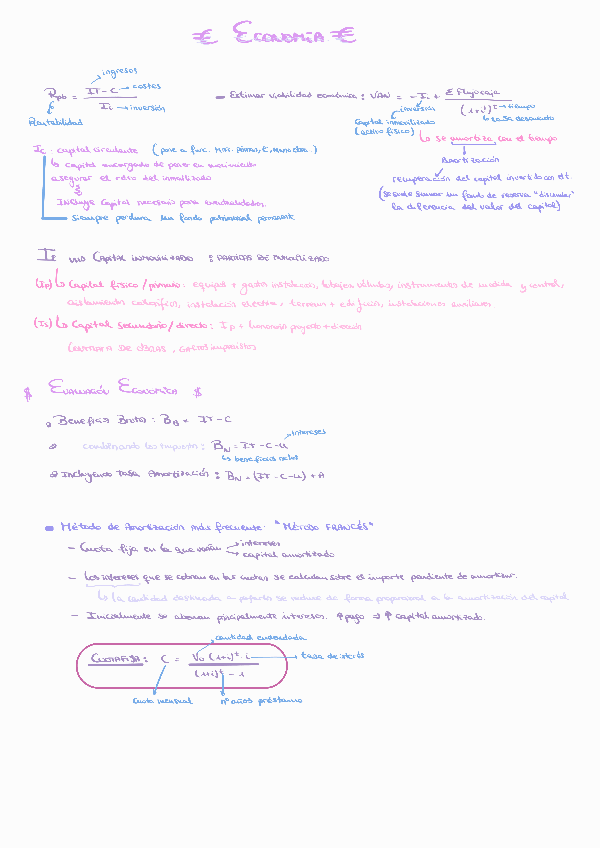 € ECONOMÍA €
ingresos
Rpb = IT - C → costes
I₁ → inversión
Rentabilidad
- Estimar viabilidad económica: VAN = -I₀ + Σ Flujo caja
(1+i)^t → tiempo
inversión
tasa descuento
Capital inmovilizado
(activo físico)
↳ se amortiza con el tiempo
Amortización
recuperación del capital invertido en el t
(se suele sumar un fondo de reserva "disimular"
la diferencia del valor del capital)
Ic: capital circulante (pone a func. mat. primas, E, mano obra.)
↳ capital encargado de poner en movimiento
asegurar el retno del inmovilizado
Incluye capital necesario para eventualidades.
siempre perdura un fondo patrimonial permanente
CAPITAL INMOVILIZADO: PARTIDAS DE INMOVILIZADO
(Ip) ↳ Capital físico / primario: equipos + gastos instalación, tuberías, válvulas, instrumentos de medida y control,
aislamiento calorífico, instalación eléctrica, terrenos + edificios, instalaciones auxiliares
(Is) ↳ Capital secundario / directo: Ip + honorarios proyecto + dirección
CONTRATA DE OBRAS, GASTOS imprevistos
$ EVALUACIÓN ECONÓMICA $
Beneficio Bruto: BB = IT - C
intereses
considerando los impuestos: BN = IT - C - u
↳ beneficios netos
Incluyendo tasa Amortización: BN = (IT - C - u) + A
Método de Amortización más frecuente: "MÉTODO FRANCÉS"
- Cuota fija en la que varían → intereses
→ capital amortizado
- Los intereses que se cobran en las cuotas se calculan sobre el importe pendiente de amortizar.
↳ la cantidad destinada a pagarlos se reduce de forma proporcional a la amortización del capital
- Inicialmente se abonan principalmente intereses. ↑ pago → ↑ capital amortizado.
cantidad endeudada
CUOTA FIJA: C = V₀ (1+i)^t i → tasa de interés
(1+i)^t - 1
Cuota mensual
nº años préstamo